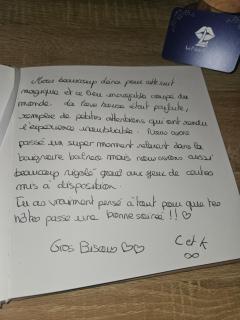 Merci beaucoup dans pour cette nuit
magique et ce lieu incroyable coupé du
monde. La love house était parfaite,
remplie de petites attentions qui ont rendu
l'expérience inoubliable. Nous avons
passé un super moment relaxant dans la
baignoire balnéo mais nous avons aussi
beaucoup rigolé grâce aux jeux de cartes
mis à disposition.
Tu as vraiment pensé à tout pour que tes
hôtes passe une bonne soirée !! ♡
Gros Bisous ♡♡
C et K
∞